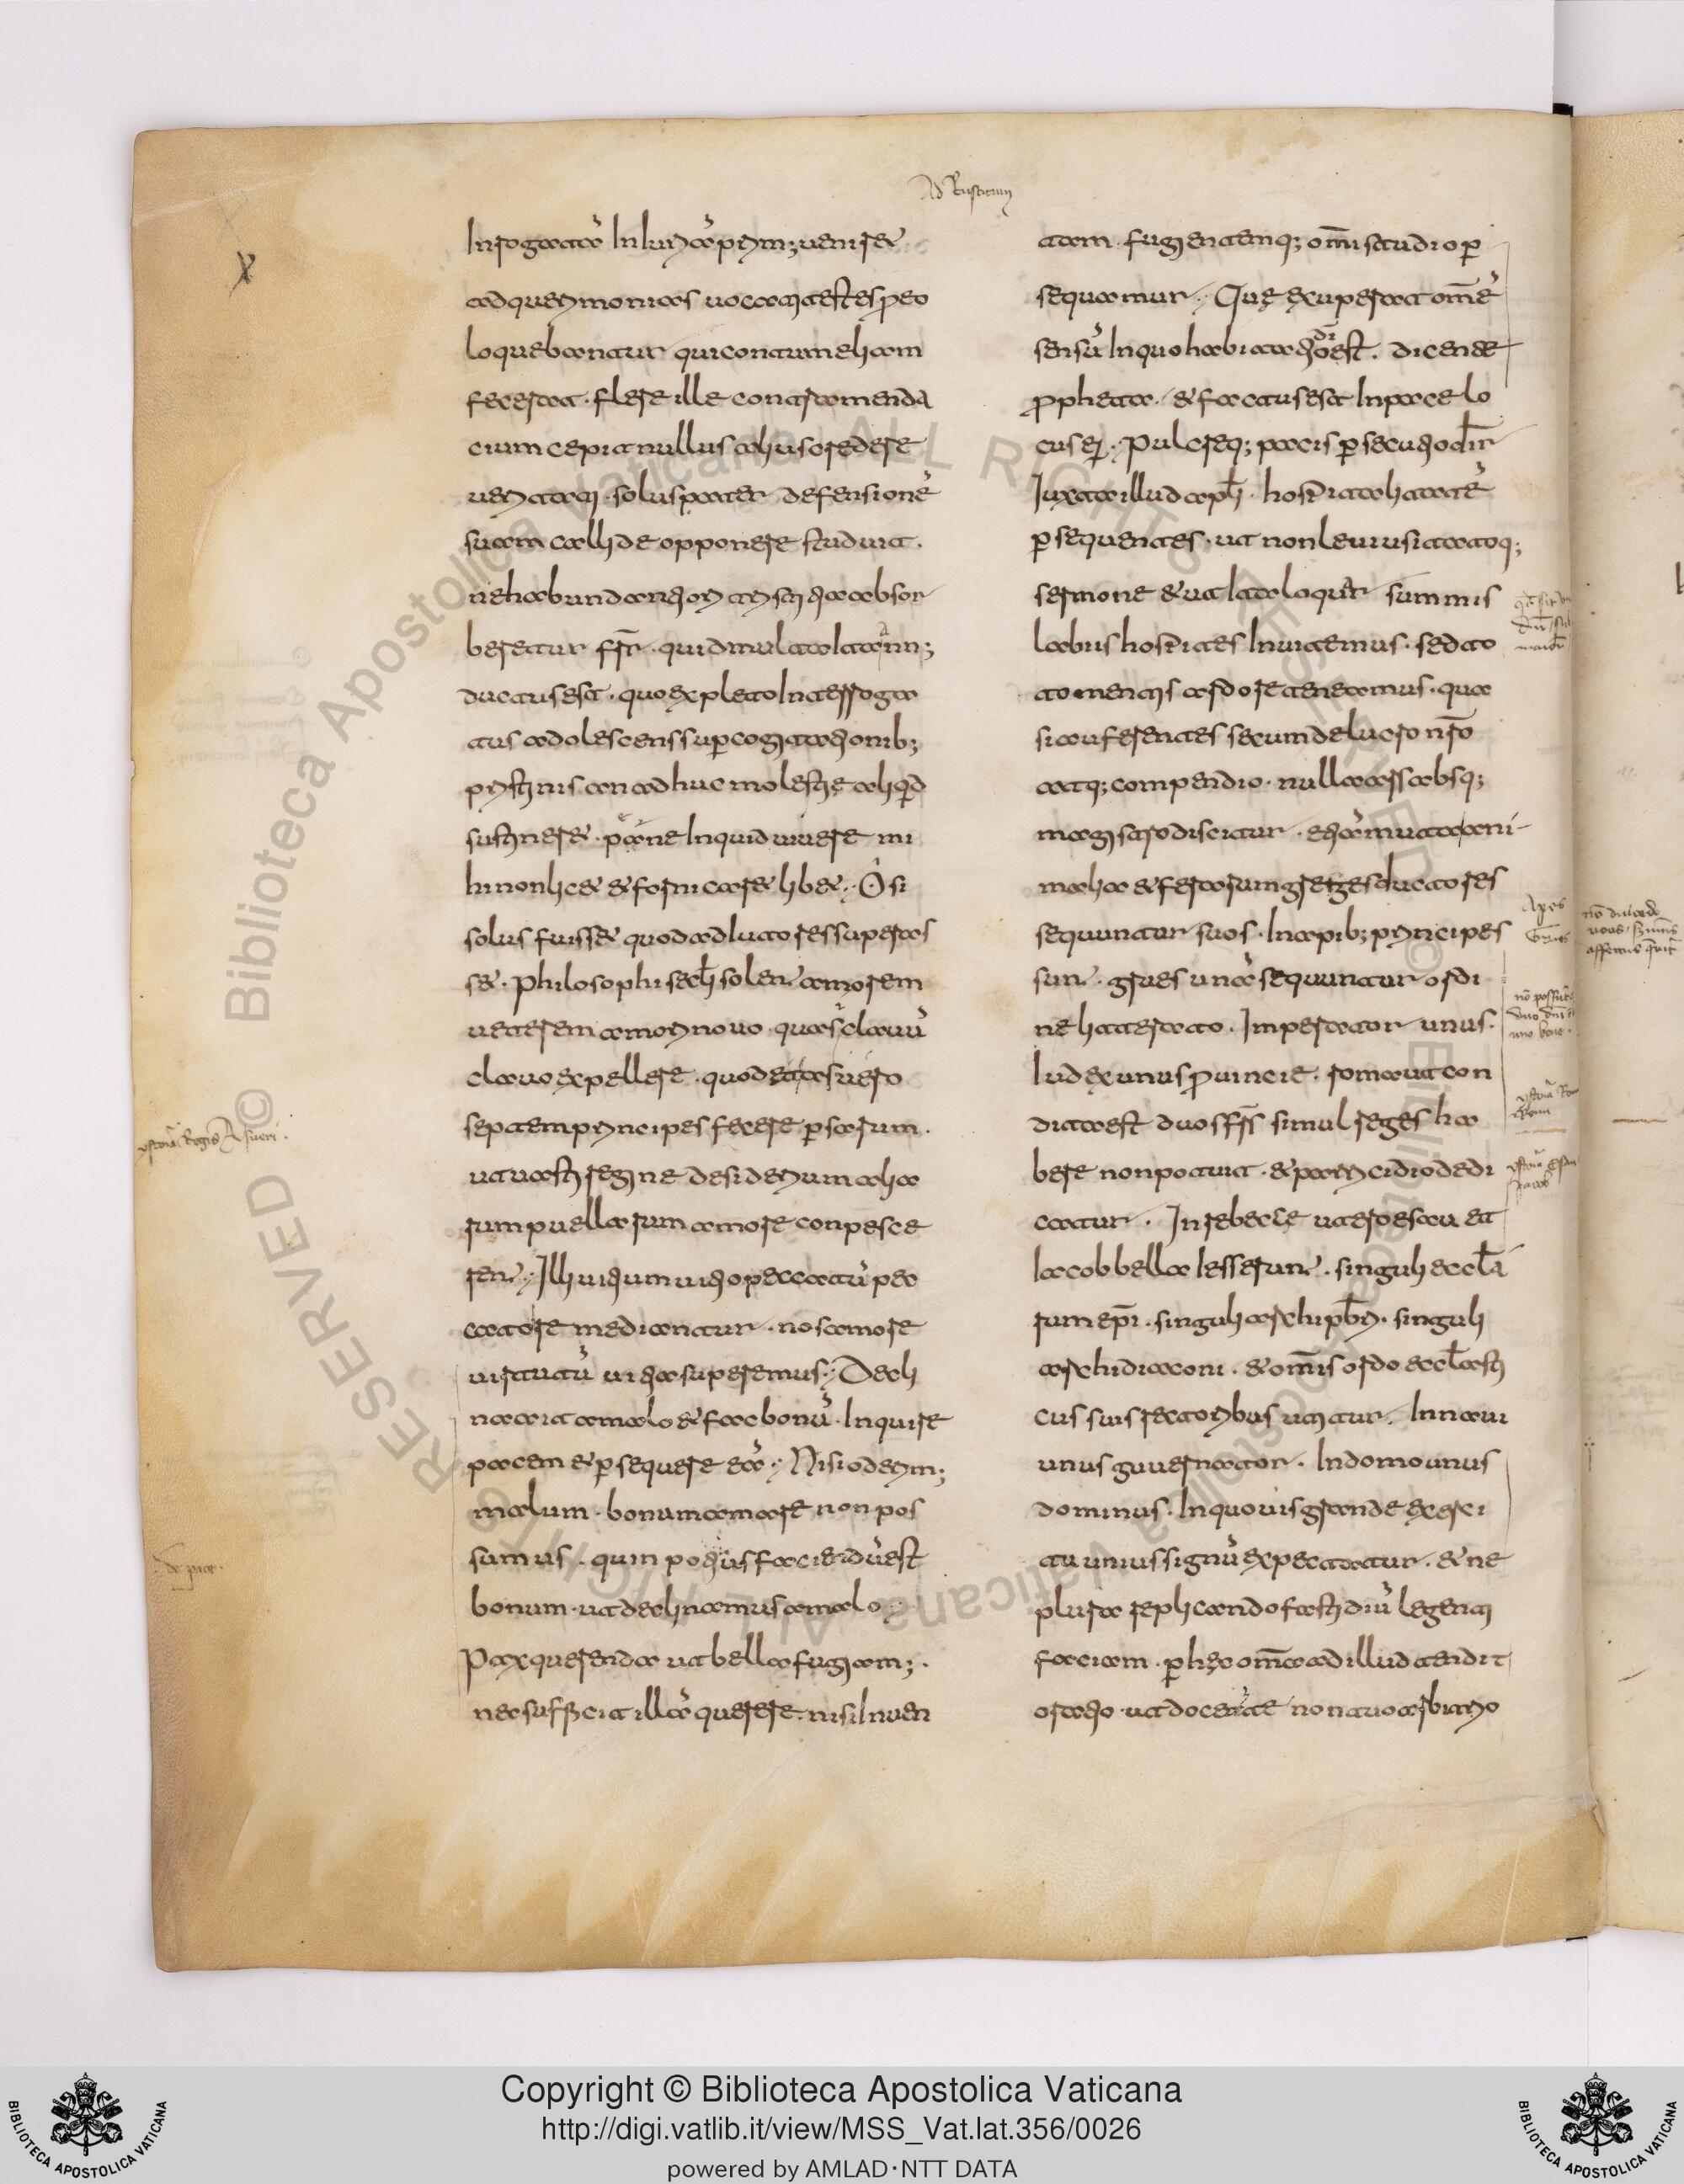 Ad Rusticum
Inrogata iniuria primus uenisset
ad querimonias uocati testes pro eo
loquebantur qui contumeliam
fecerat. flere ille contra menda
cium cepit nullus alius credere
ueritati. solus pater defensionē
suam callide opponere studuit.
ne habundantiori tristitia absor
beretur fr̄. quid multa ita ann;
ductus est. quo expleto interroga
tus adolescens sup cogitationib;
pristinis an adhuc molestię aliqd
sustineret. papę inquid uiuere mi
hi non licet & fornicari libet. O si
solus fuisset quo adiutore superas
set. Philosophi secli solent amorem
ueterem amore nouo quasi clauū
clauo expellere. quod et asuero
septem principes fecere persarum.
ut uasti regine desiderium alia
rum puellarum amore conpesce
rent. Illi uitium uitio peccatū pec
cato remediantur. nos amore
uirtutū uitia superemus. Decli
na ait a malo & fac bonū. Inquire
pacem & p sequere eā. Nisi oderim;
malum. bonum amare non pos
sumus. quin potius faciendū est
bonum. ut declinemus a malo.
Pax querenda ut bella fugiam;.
nec sufficit illā querere. nisi inuen
tam. fugientemq; om̄i studio p
sequamur. Quę exuperat om̄ē
sensū in quo habitatio dī est. dicente
propheta. & factus est in pace lo
cus eī. Pulcreq; pacis p secutio dīr
Iuxta illud apłi. hospitalitatē
p sequentes. ut non leui usitatoq;
sermone & ut ita loquar summis
labiis hospites inuitemus. sed to
to mentis ardore teneamus. qua
si auferentes secum de lucro nr̄o
atq; compendio. nulla ars absq;
magistro discitur. etiā muta ani
malia & ferarum greges ductores
sequuntur suos. In apib; principes
sunt. grues unā sequuntur ordi
ne litterato. Imperator unus.
Iudex unus prouincie. roma ut con
dita est duos frs̄ simul reges ha
bere non potuit. & parricidio dedi
catur. In rebecce utero esau et
Iacob bella gesserunt. singuli eccla
rum ep̄i. singuli archi pbri. singuli
archidiaconi. & om̄is ordo ecclasti
cus suis rectoribus nititur. In naui
unus guuernator. In domo unus
dominus. In quouis grande exerci
tu unius signū expectatur. & ne
plura replicando fastidiū legenti
faciam. p hęc om̄a ad illud tendit
oratio. ut doceā te non tuo arbitrio
ystoria Regis Asueri.
de pace.
Apes
Grues
Biblioteca Apostolica Vaticana
ALL RIGHTS RESERVED
Copyright © Biblioteca Apostolica Vaticana
http://digi.vatlib.it/view/MSS_Vat.lat.356/0026
powered by AMLAD·NTT DATA
BIBLIOTECA APOSTOLICA VATICANA
BIBLIOTECA APOSTOLICA VATICANA